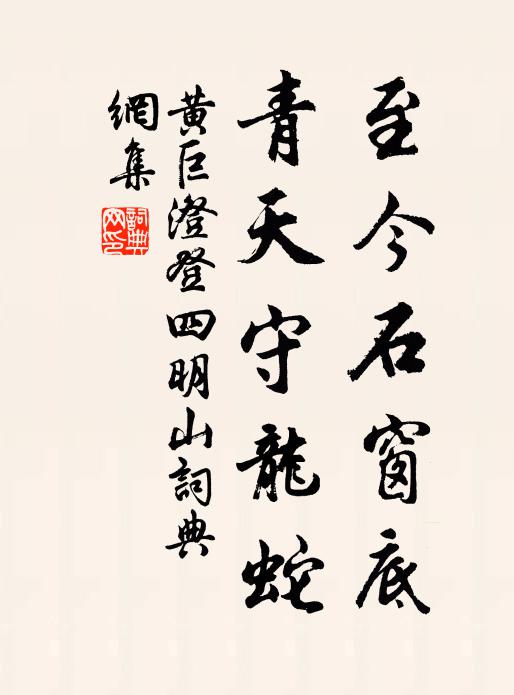 至今石窗底
青天守龍蛇
黄巨澄登四明山詞典
網集
詞典
网印